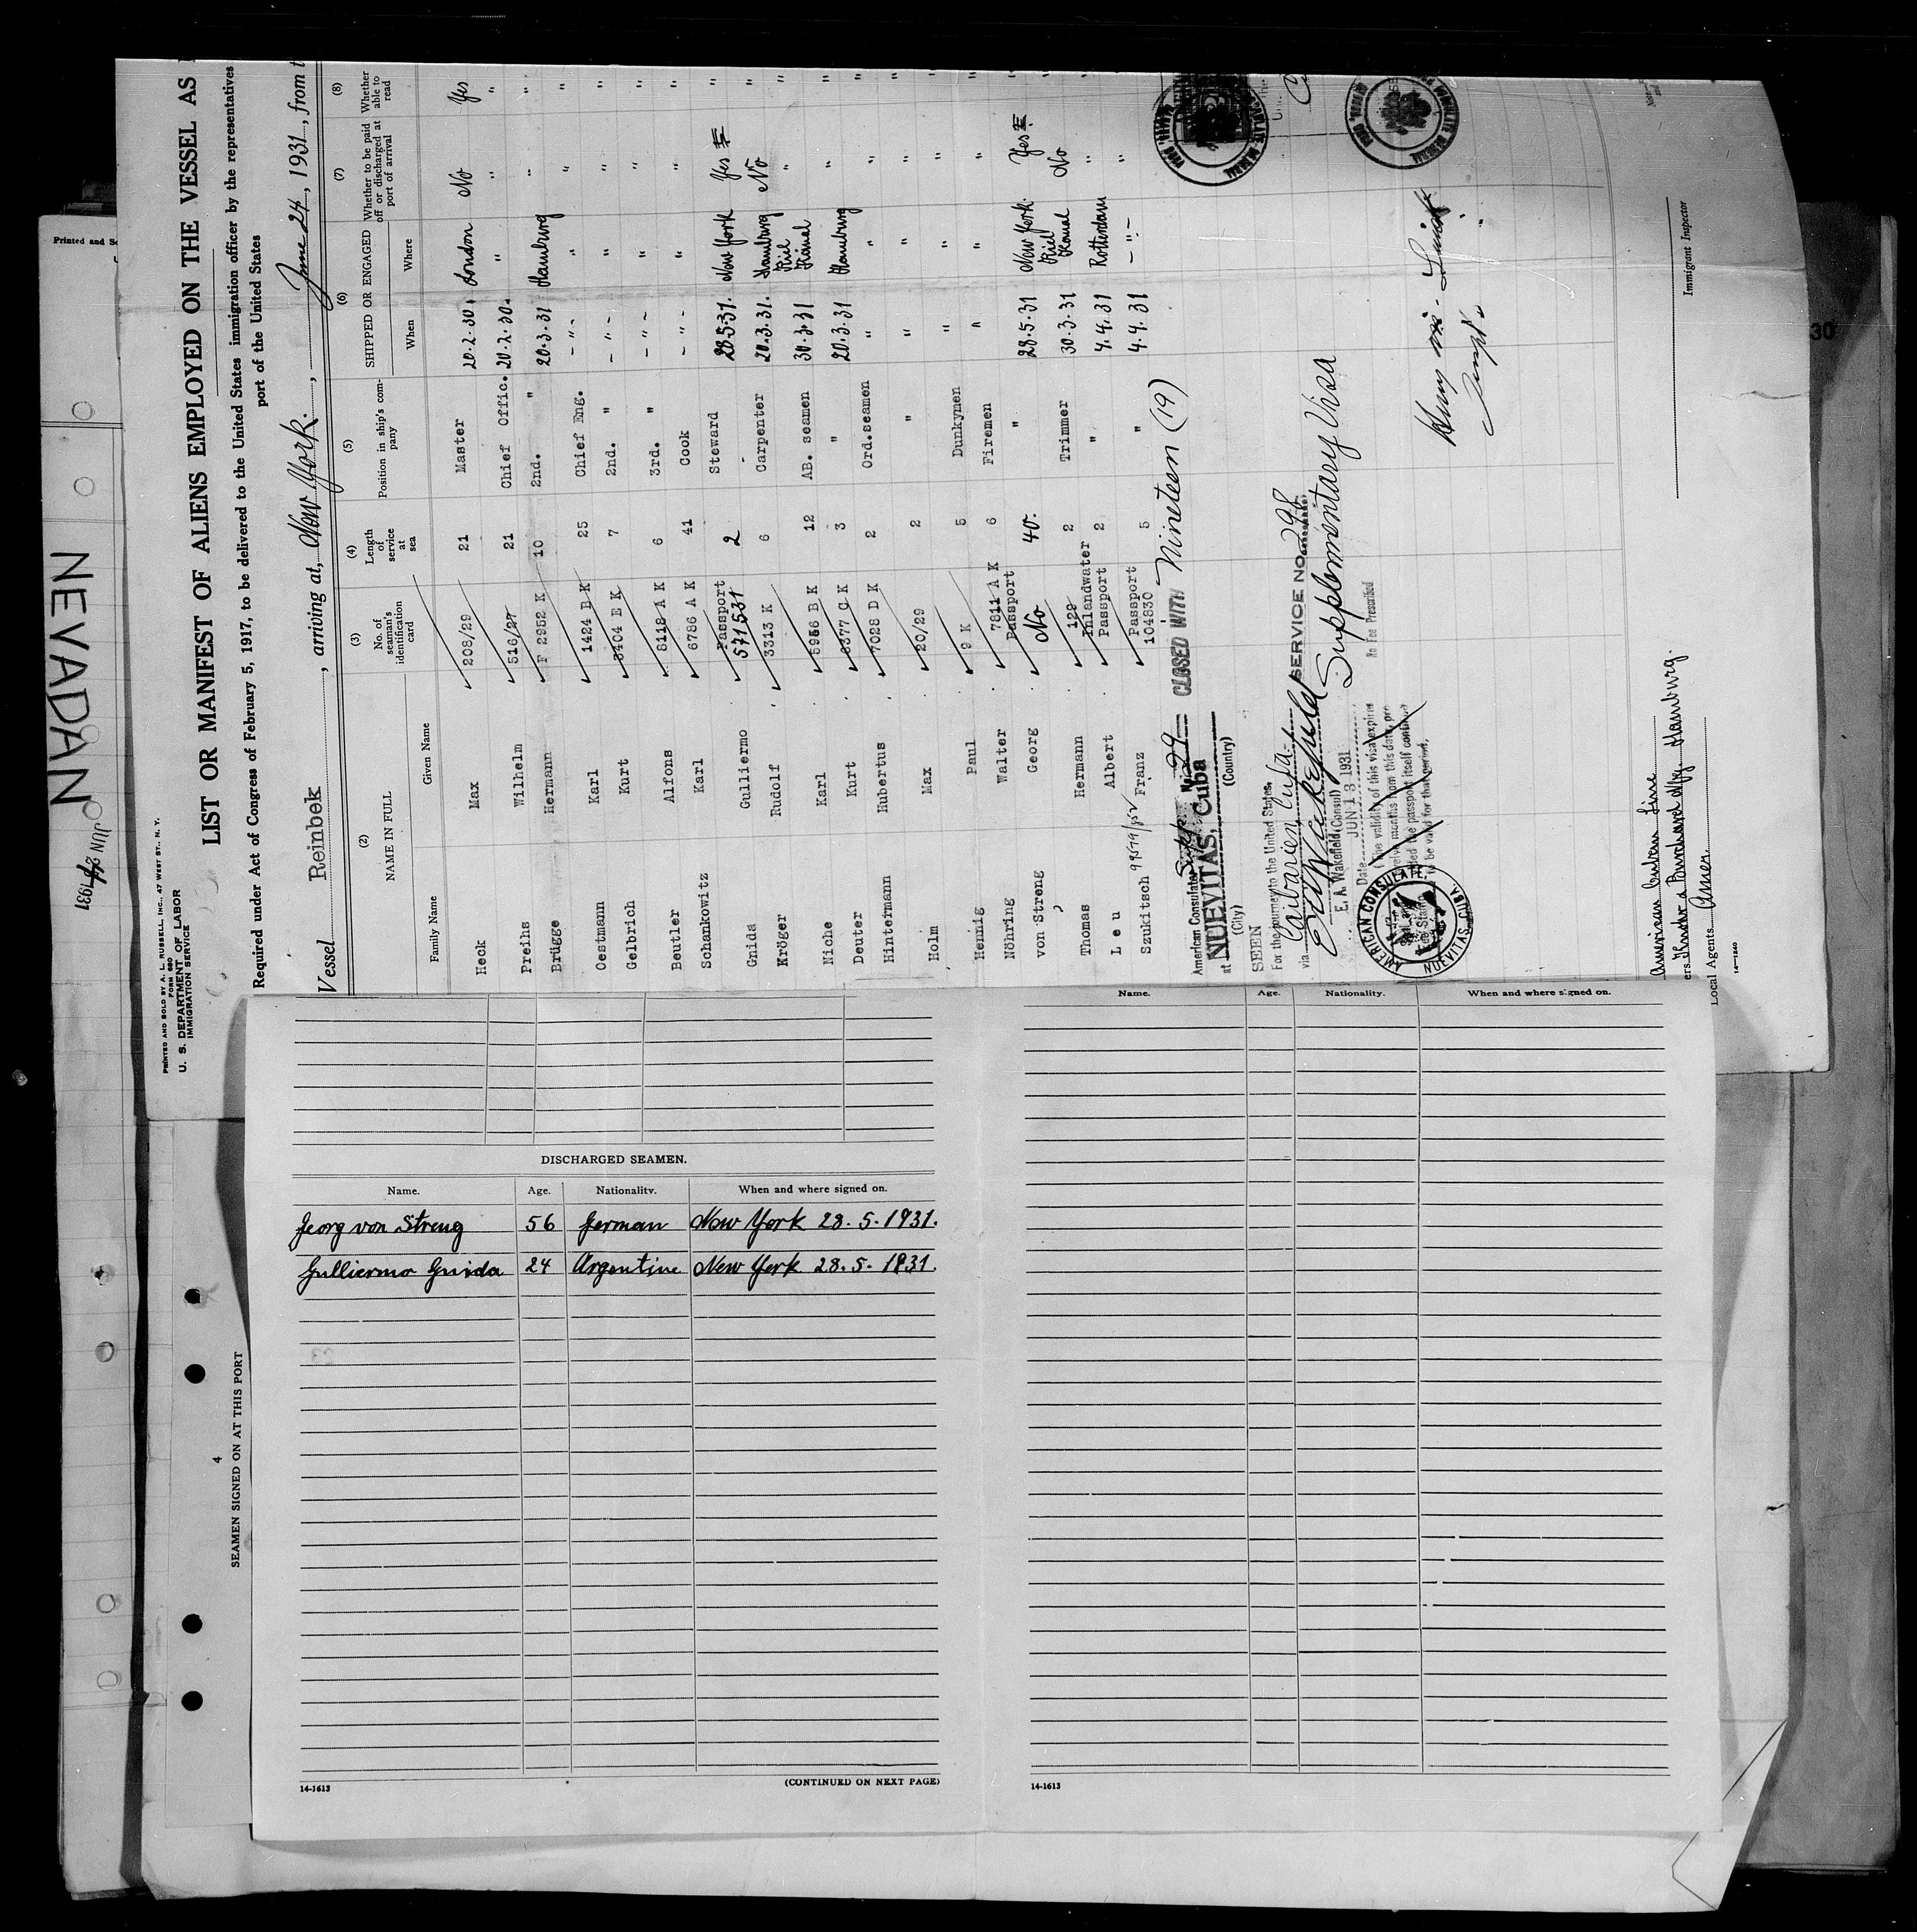 Printed and
NEVADAN
JUN 1931
PRINTED AND SOLD BY A. L. RUSSELL, INC., 47 WEST ST., N. Y.
FORM 680
U. S. DEPARTMENT OF LABOR
IMMIGRATION SERVICE
LIST OR MANIFEST OF ALIENS EMPLOYED ON THE VESSEL AS
Required under Act of Congress of February 5, 1917, to be delivered to the United States immigration officer by the representatives
port of the United States
Vessel Reinbek, arriving at, New York., June 24, 1931, from
(2) (3) (4) (5) (6) (7) (8)
NAME IN FULL No. of seaman's identification card Length of service at sea Position in ship's company SHIPPED OR ENGAGED Whether to be paid off or discharged at port of arrival Whether able to read
Family Name Given Name When Where
Heck Max 208/29 21 Master 20.2.30. London No Yes
Preihs Wilhelm 516/27 21 Chief Offic. 20.2.30. " " "
Brügge Hermann F 2952 K 10 2nd. " 20.3.31 Hamburg " "
Oestmann Karl 1424 B K 25 Chief Eng. - " - " " "
Gelbrich Kurt 3404 E K 7 2nd. " - " - " " "
Beutler Alfons 8118 A K 6 3rd. " - " - " " "
Schankowitz Karl 6786 A K 41 Cook - " - " " "
Gnida Gulliermo Passport 571531 2 Steward 28.5.31. New York Yes "
Kröger Rudolf 3313 K 6 Carpenter 20.3.31. Hamburg No "
Niche Karl 5956 B K 12 AB. seamen 30.3.31 Kiel Kanal " "
Deuter Kurt 8377 C K 3 " 20.3.31 Hamburg " "
Hintermann Hubertus 7028 D K 2 Ord.seamen " " " "
Holm Max 20/29 2 " " " " "
Hennig Paul 9 K 5 Dunkymen " " " "
Nöhring Walter 7811 A K 6 Firemen " " " "
von Streng Georg Passport No 40. " 28.5.31 New York. Yes "
Thomas Hermann 129 2 Trimmer 30.3.31 Kiel Kanal No "
L e u Albert Inlandwater Passport 2 " 4.4.31 Rotterdam "
Szukitsch Franz Passport 104830 5 " 4.4.31 - " - "
CLOSED WITH Nineteen (19)
American Consulate
at NUEVITAS, Cuba
(City) (Country)
SEEN
For the journey to the United States,
via Caibarien, Cuba
SERVICE NO. 298
E. A. Wakefield (Consul)
Supplementary Visa
No Fee Prescribed
Date JUN 13 1931
(The validity of this visa expires
twelve months from this date, pro
vided the passport itself continues
to be valid for that period,
AMERICAN CONSULATE
NUEVITAS, CUBA
Immigrant Inspector
American Cuban Line
Hamburg.
Local Agents
14-1240
30
Name. Age. Nationality. When and where signed on.
4
SEAMEN SIGNED ON AT THIS PORT
DISCHARGED SEAMEN.
Name. Age. Nationality. When and where signed on.
Georg von Streng 56 German New York 28. 5. 1931.
Gulliermo Gnida 24 Argentine New York 28. 5. 1931.
14-1613 (CONTINUED ON NEXT PAGE)
14-1613